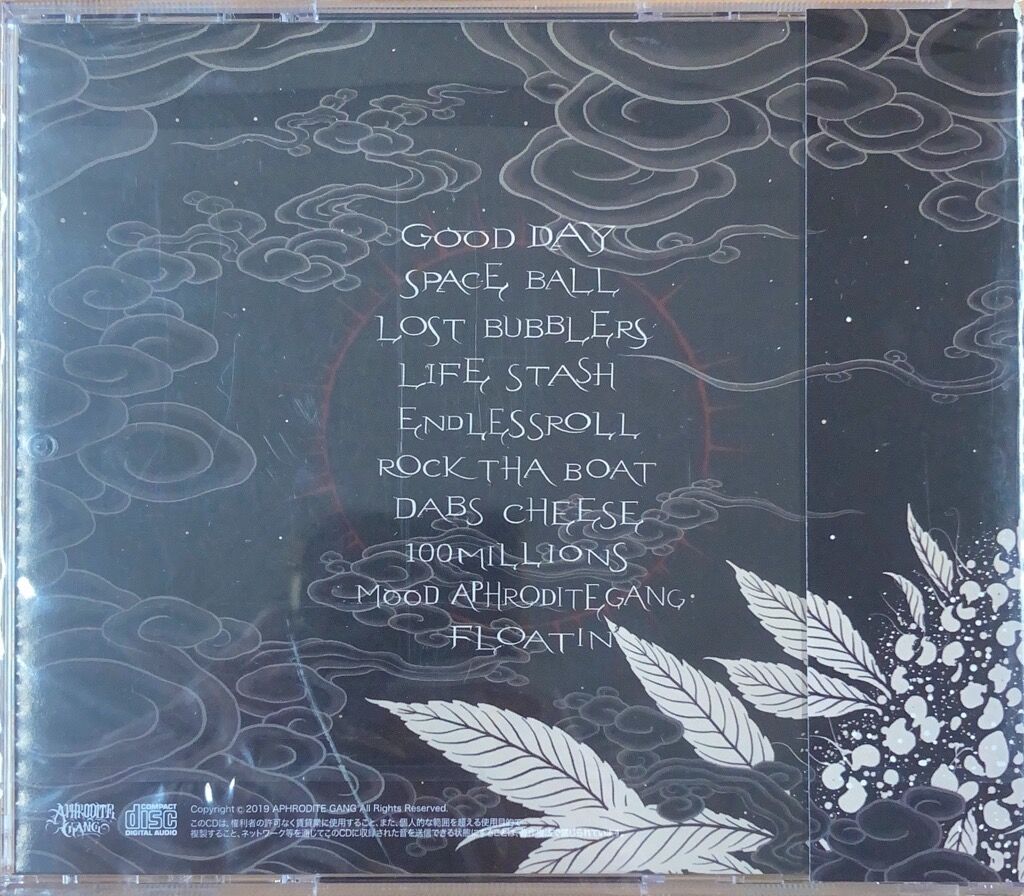 GOOD DAY
SPACE BALL
LOST BUBBLERS
LIFE STASH
ENDLESSROLL
ROCK THA BOAT
DABS CHEESE
100MILLIONS
MOOD APHRODITEGANG
FLOATIN
APHRODITE
GANG
COMPACT
disc
DIGITAL AUDIO
Copyright c 2019 APHRODITE GANG All Rights Reserved.
このCDは、権利者の許可なく賃貸業に使用すること、また、個人的な範囲を超える使用目的で
複製すること、ネットワーク等を通じてこのCDに収録された音を送信できる状態にすることは、